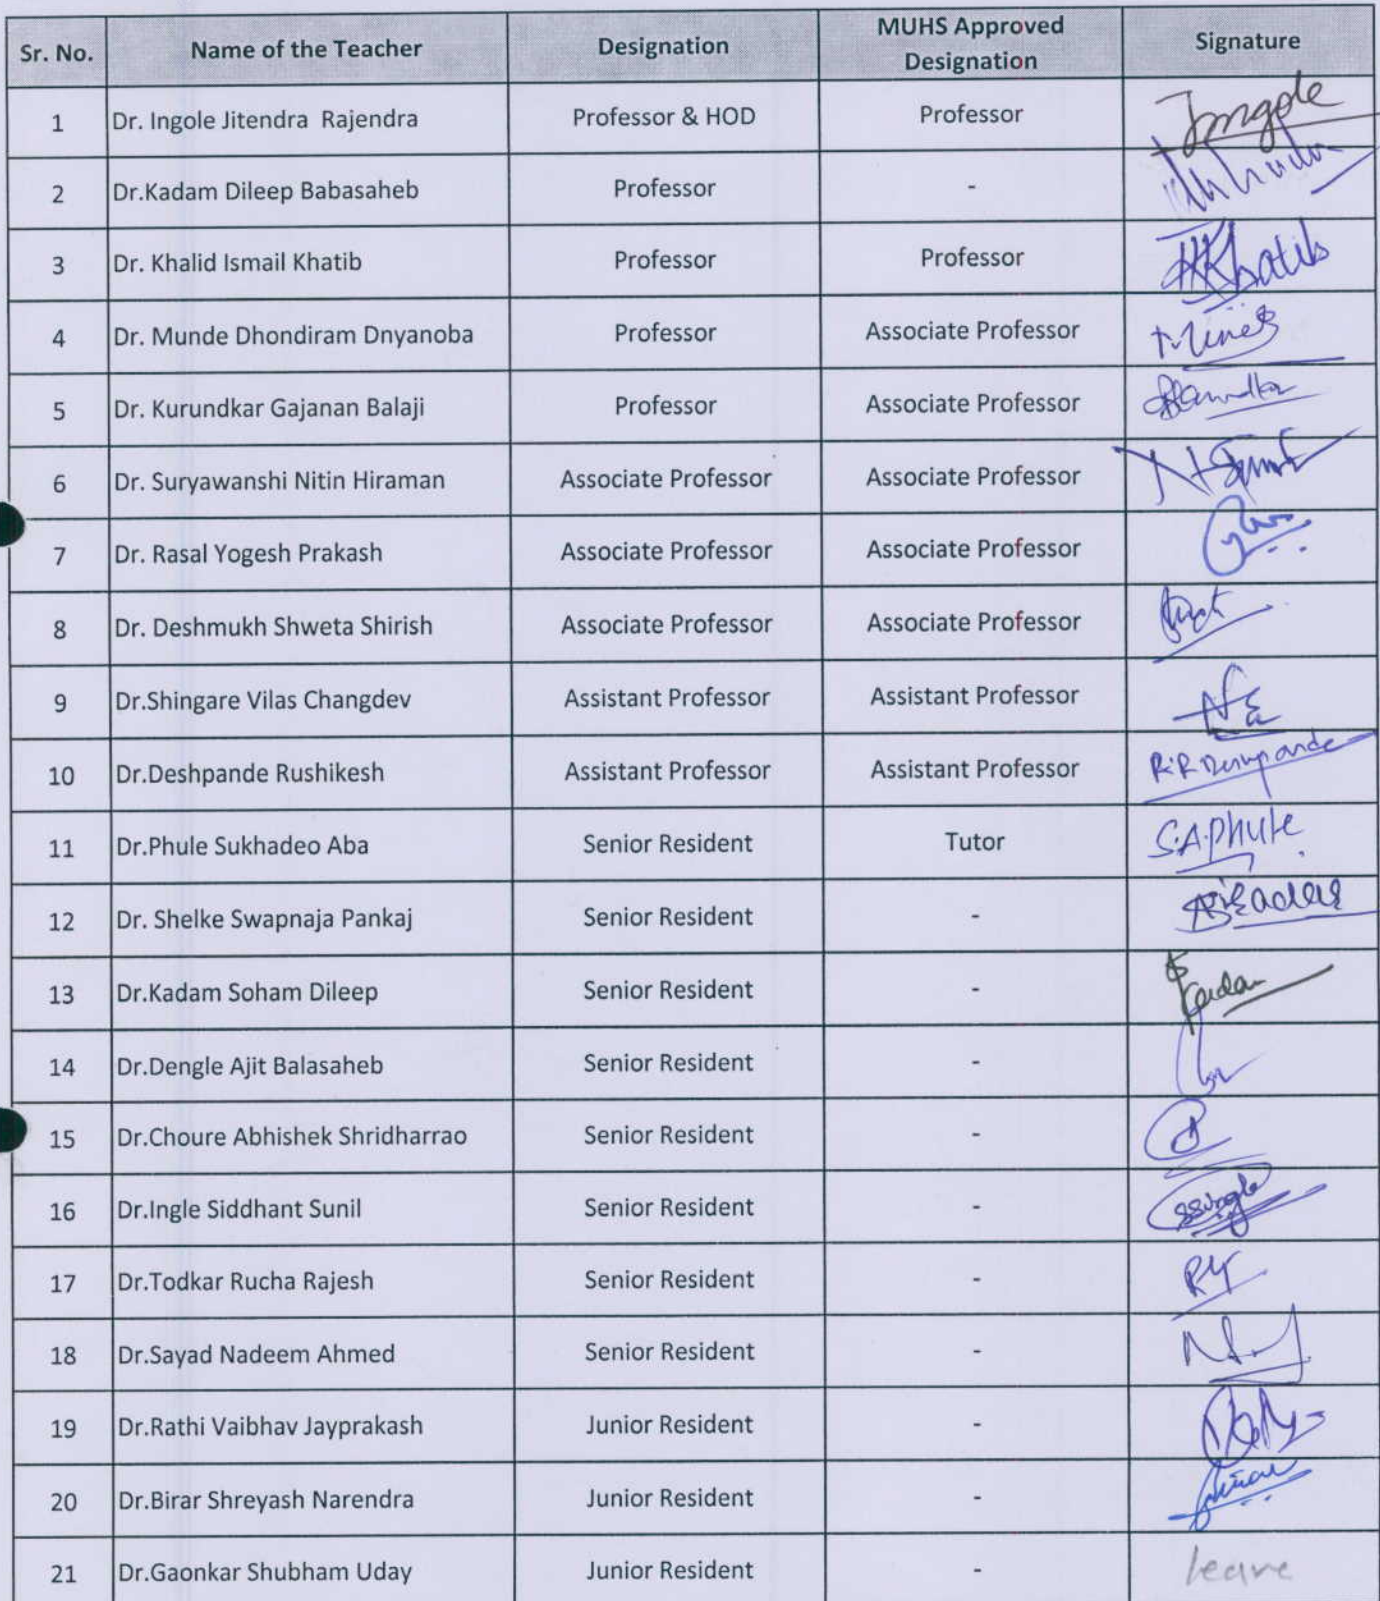 Sr. No. Name of the Teacher Designation MUHS Approved Designation Signature
1 Dr. Ingole Jitendra Rajendra Professor & HOD Professor Jmgole
2 Dr.Kadam Dileep Babasaheb Professor -
3 Dr. Khalid Ismail Khatib Professor Professor KKhatib
4 Dr. Munde Dhondiram Dnyanoba Professor Associate Professor
5 Dr. Kurundkar Gajanan Balaji Professor Associate Professor
6 Dr. Suryawanshi Nitin Hiraman Associate Professor Associate Professor
7 Dr. Rasal Yogesh Prakash Associate Professor Associate Professor
8 Dr. Deshmukh Shweta Shirish Associate Professor Associate Professor
9 Dr.Shingare Vilas Changdev Assistant Professor Assistant Professor
10 Dr.Deshpande Rushikesh Assistant Professor Assistant Professor
11 Dr.Phule Sukhadeo Aba Senior Resident Tutor S.A.Phule
12 Dr. Shelke Swapnaja Pankaj Senior Resident -
13 Dr.Kadam Soham Dileep Senior Resident -
14 Dr.Dengle Ajit Balasaheb Senior Resident -
15 Dr.Choure Abhishek Shridharrao Senior Resident -
16 Dr.Ingle Siddhant Sunil Senior Resident - SSingle
17 Dr.Todkar Rucha Rajesh Senior Resident -
18 Dr.Sayad Nadeem Ahmed Senior Resident -
19 Dr.Rathi Vaibhav Jayprakash Junior Resident -
20 Dr.Birar Shreyash Narendra Junior Resident -
21 Dr.Gaonkar Shubham Uday Junior Resident - leave